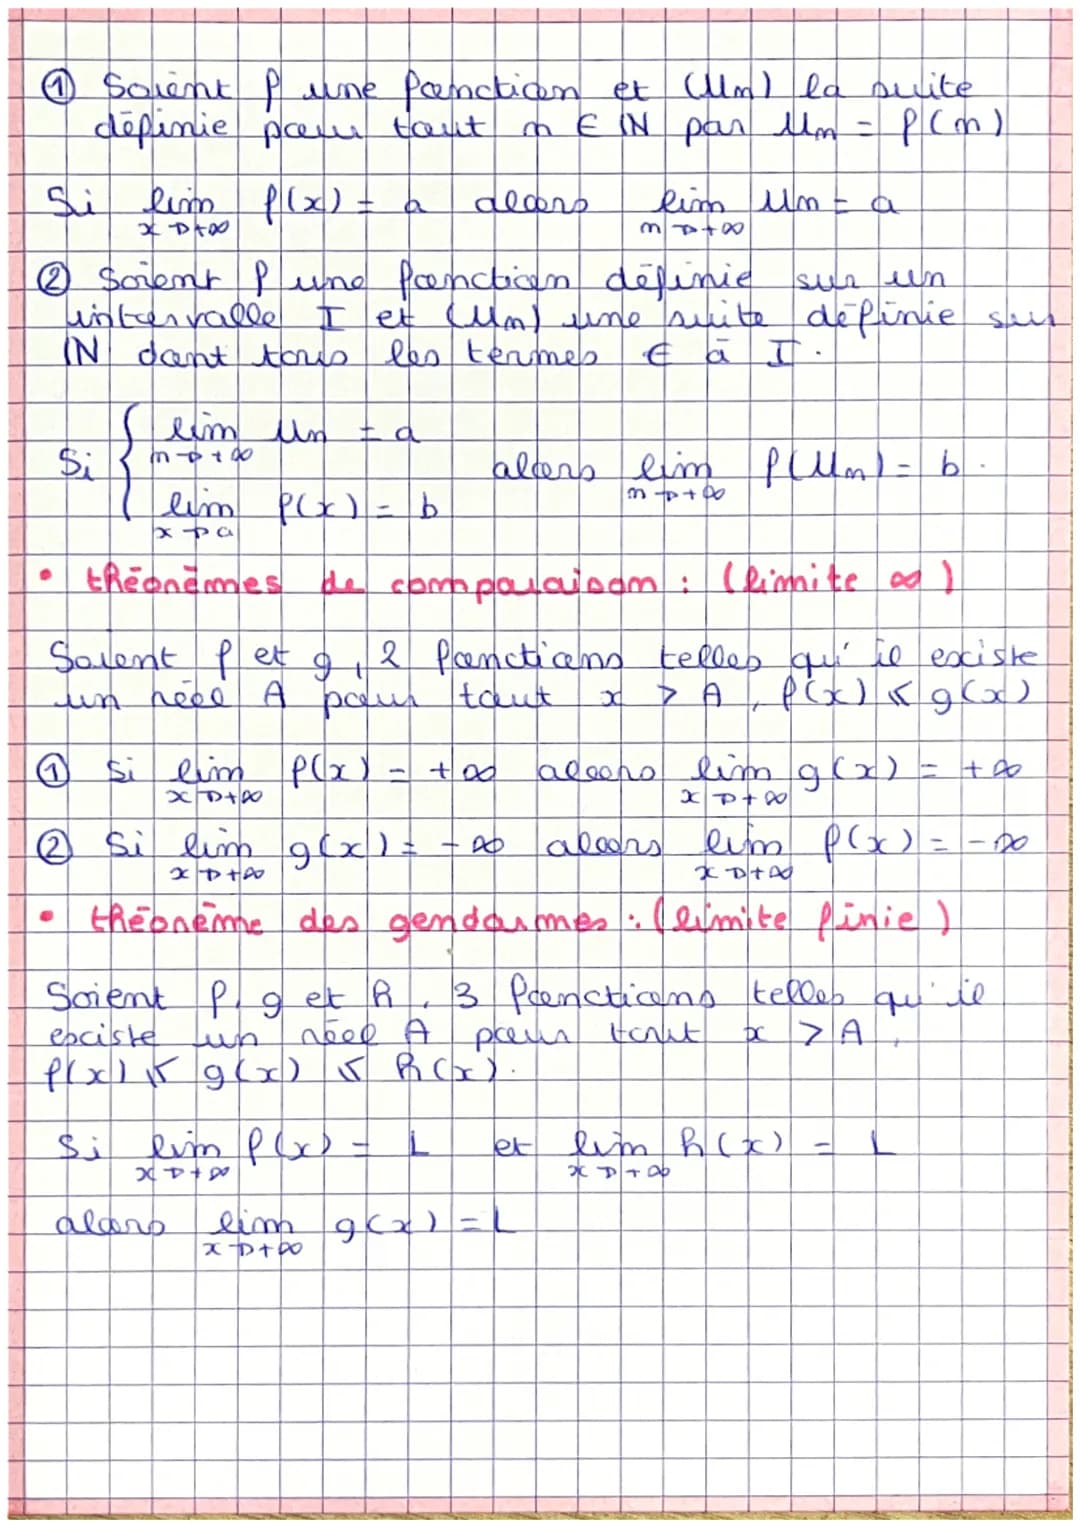 ① Soient f une fonction et (Un) la suite
définie pour tout n ∈ ℕ par Un = f(n)
Si lim f(x) = a alors lim Un = a
x→+∞ n→+∞
② Soient f une fonction définie sur un
intervalle I et (Un) une suite définie sur
ℕ dont tous les termes ∈ à I.
lim Un = a
n→+∞
Si { alors lim f(Un) = b.
n→+∞
lim f(x) = b
x→a
• théorèmes de comparaison : (limite ∞)
Soient f et g, 2 fonctions telles qu'il existe
un réel A pour tout x > A, f(x) ≤ g(x)
① Si lim f(x) = +∞ alors lim g(x) = +∞
x→+∞ x→+∞
② Si lim g(x) = -∞ alors lim f(x) = -∞
x→+∞ x→+∞
• théorème des gendarmes : (limite finie)
Soient f, g et h, 3 fonctions telles qu'il
existe un réel A pour tout x > A,
f(x) ≤ g(x) ≤ h(x).
Si lim f(x) = L et lim h(x) = L
x→+∞ x→+∞
alors lim g(x) = L
x→+∞